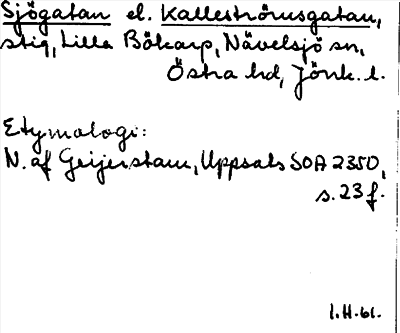 Sjögatan el. Kalleströmsgatan,
stig, Lilla Bökarp, Nävelsjö sn,
Östra hd, Jönk. l.
Etymologi:
N. af Geijerstam, Uppsats SOA 2350,
s. 23 f.
I.H. 61.